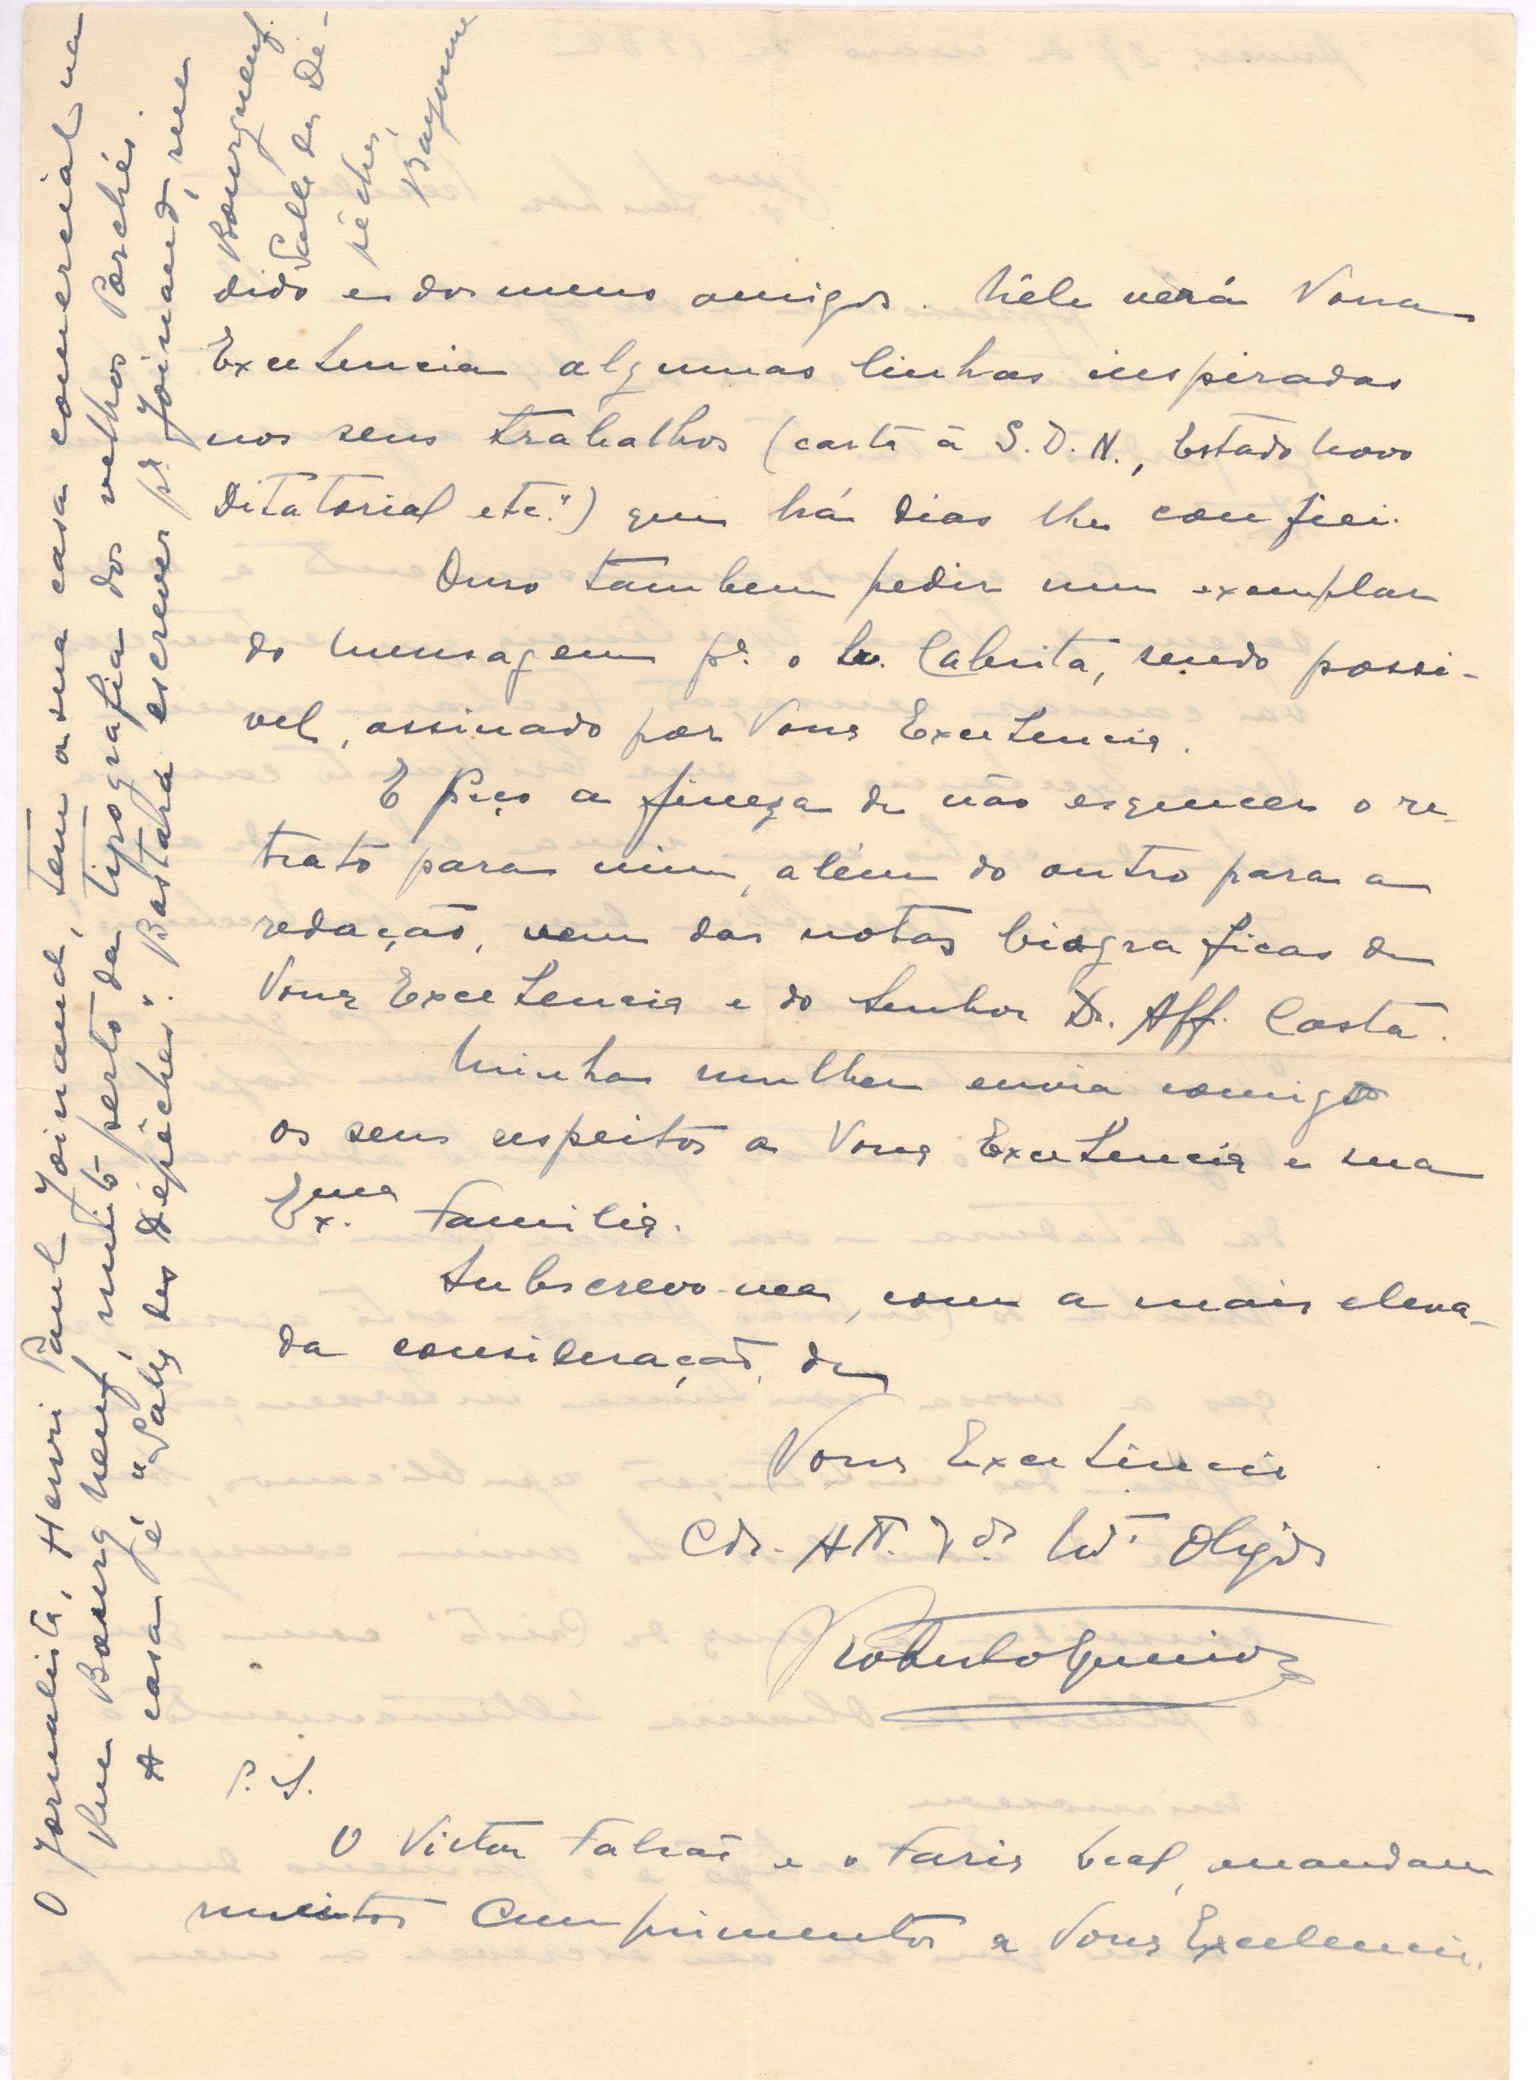 dido e dos meus amigos. Nêle verá Vossa
Excelencia algumas linhas inspiradas
nos seus trabalhos (carta à S. D. N., Estado Novo
Ditatorial etc.") que há dias lhe confiei.
Ouso tambem pedir um exemplar
do mensagem pª. o Cabrita, sendo possi-
vel, assinado por Vossa Excelencia.
E Peço a fineza de não esquecer o re-
trato para mim, além do outro para a
redação, nem das notas biograficas de
Vossa Excelencia e do Senhor Dr. Aff. Costa.
Minha mulher envia comigo
os seus respeitos a Vossa Excelencia e sua
Exma. Familia.
Subscrevo-me, com a mais eleva-
da consideração, de
Vossa Excelencia
Cdr. Att. Vdr. Mt. Obgdo
Roberto
P. S.
O Victor Falcão e o Faria Leal, mandam
muitos Cumprimentos a Vossa Excelencia.
O Jornalista, Henri Paul Joinaud, tem a sua casa comercial na
Rue Bourgneuf, muito perto da tipografia dos velhos Porchés.
A casa é "Salle des Dépèches". Bastará escrever pª. Joinaud, rue
Bourgneuf.
Salle des Dé-
pèches,
Bayonne